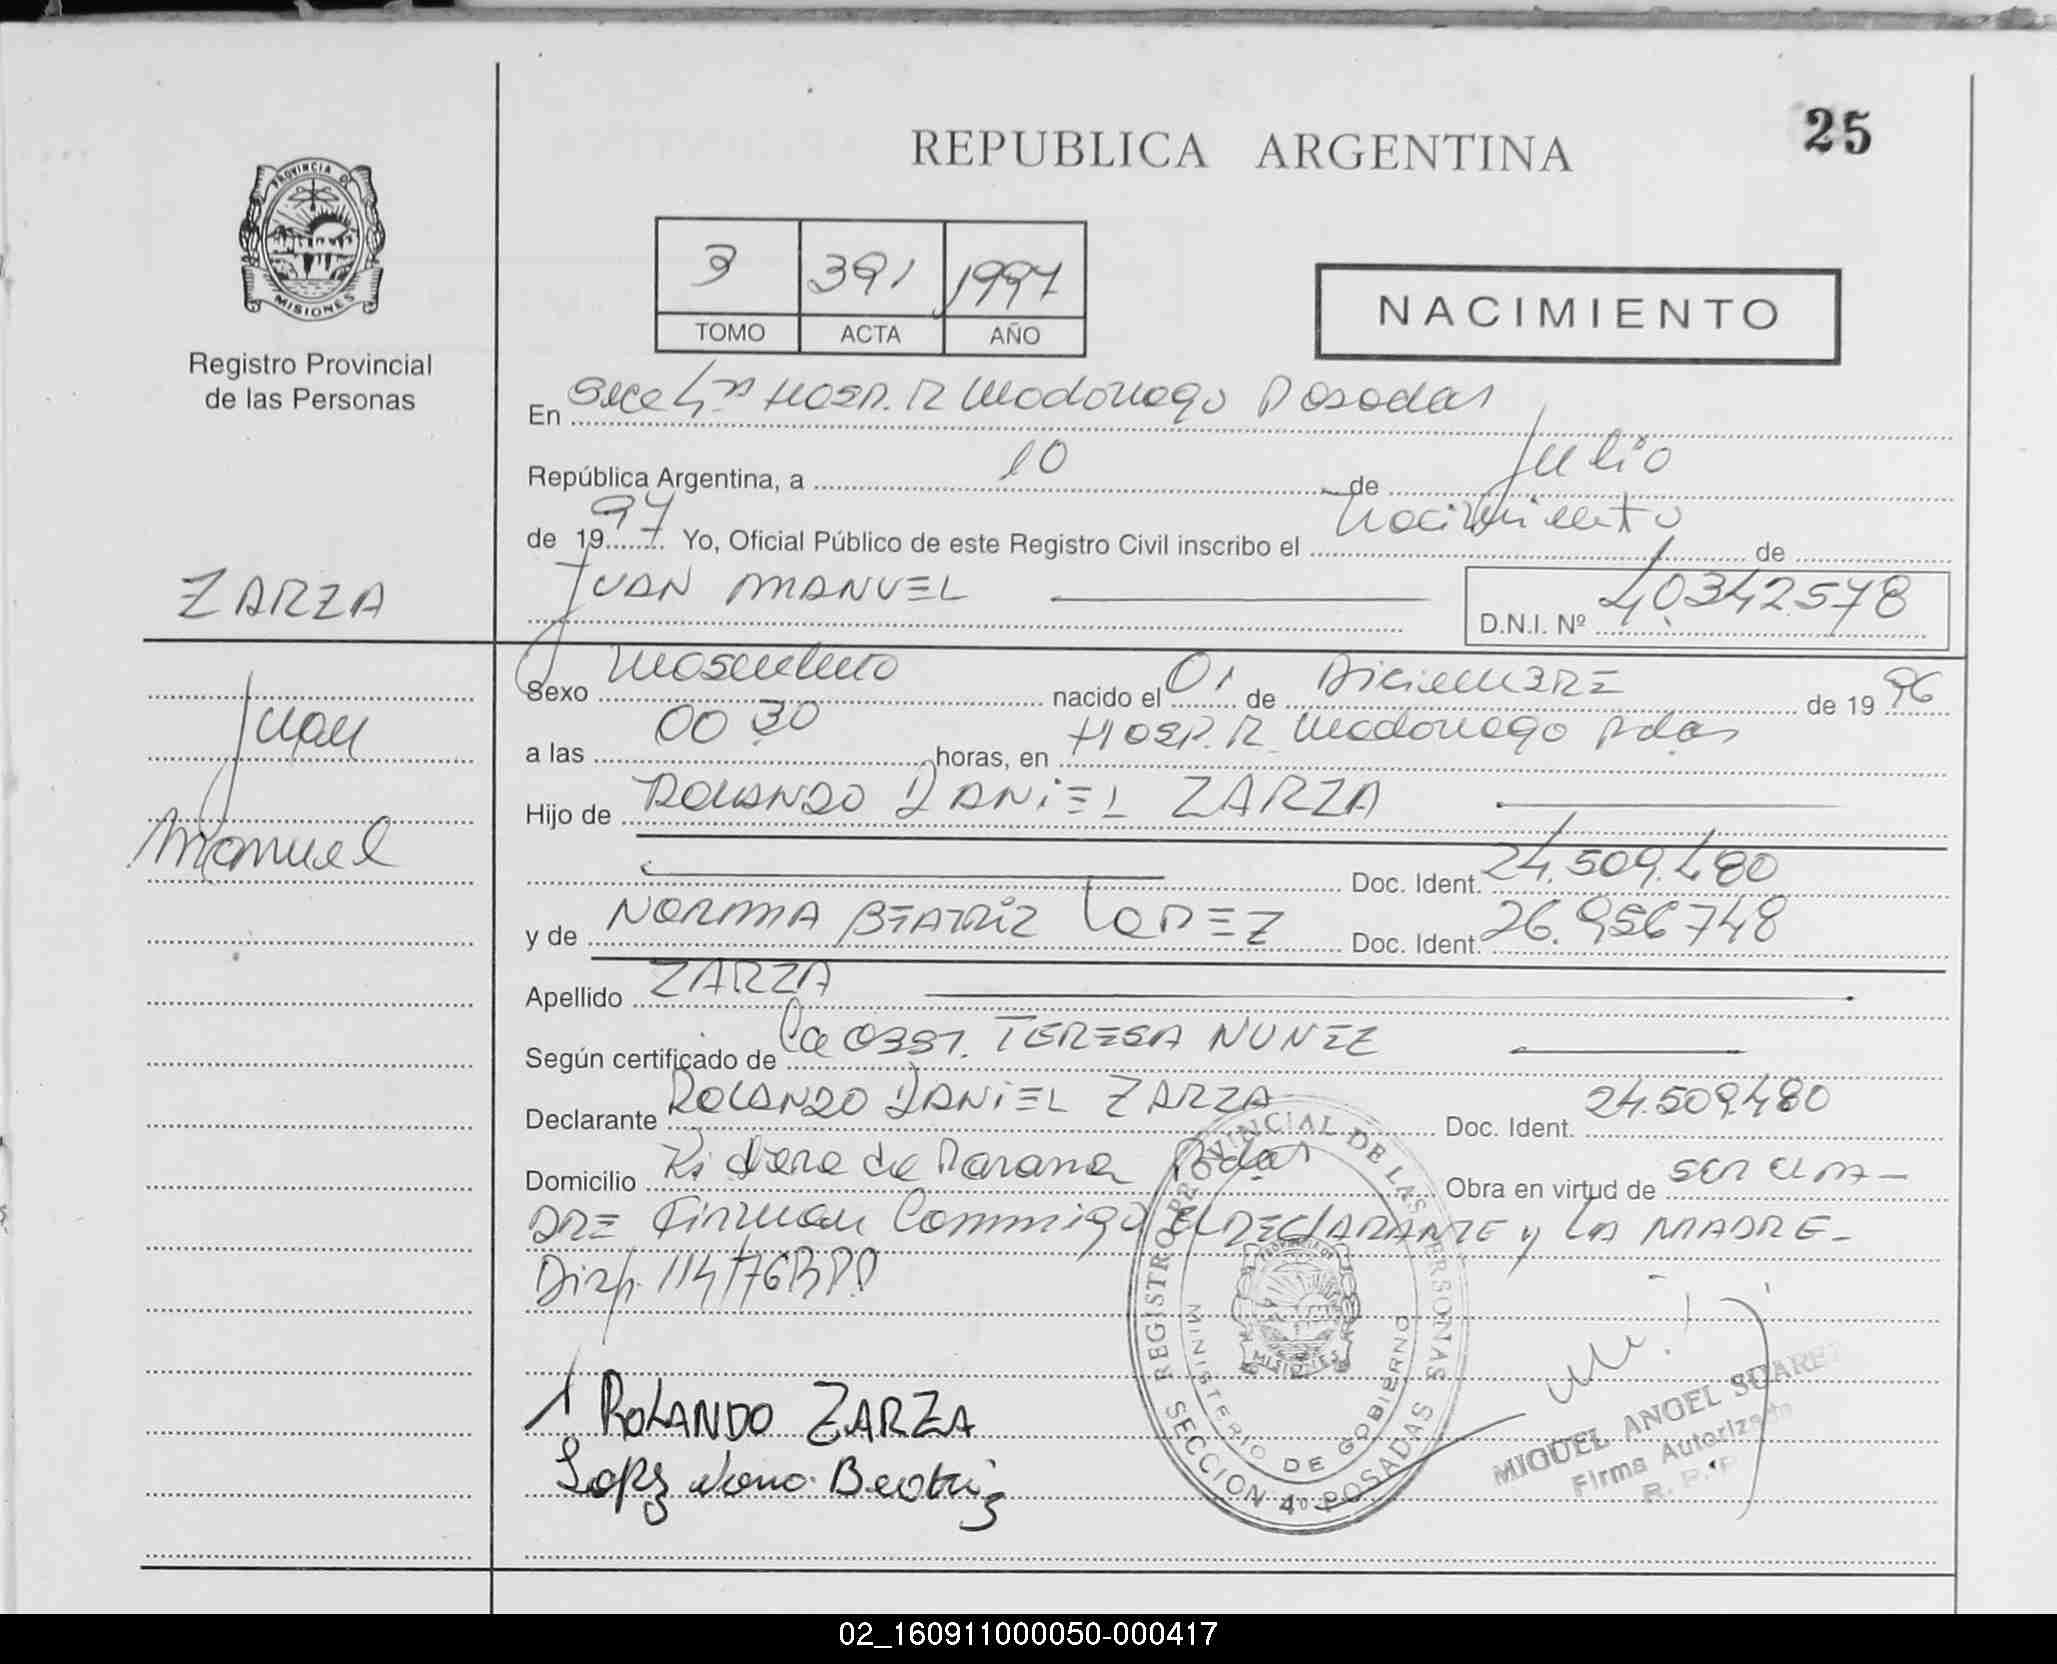 25
REPUBLICA ARGENTINA
PROVINCIA DE
MISIONES
Registro Provincial
de las Personas
3 391 1997
TOMO ACTA AÑO
NACIMIENTO
En Secc 4ta Hosp. R Madariaga Posadas
República Argentina, a 10 de Julio
de 1997 Yo, Oficial Público de este Registro Civil inscribo el Nacimiento de
ZARZA
JUAN MANUEL
D.N.I. Nº 40342578
Juan
Manuel
Sexo Masculino nacido el 01 de Diciembre de 1996
a las 00 30 horas, en Hosp. R. Madariaga Pdas
Hijo de ROLANDO DANIEL ZARZA
Doc. Ident. 24.509.480
y de NORMA BEATRIZ LOPEZ Doc. Ident. 26.956748
Apellido ZARZA
Según certificado de la OBST. TERESA NUNEZ
Declarante ROLANDO DANIEL ZARZA Doc. Ident. 24.509480
Domicilio de Parana Pdas Obra en virtud de ser el PA-
DRE Firman Conmigo el DECLARANTE y LA MADRE-
Disp. 114/76
ROLANDO ZARZA
Lopez Beatriz
REGISTRO PROVINCIAL DE LAS PERSONAS
MINISTERIO DE GOBIERNO
MISIONES
SECCION 4º POSADAS
MIGUEL ANGEL SUAREZ
Firma Autorizada
R. P. P
02_160911000050-000417